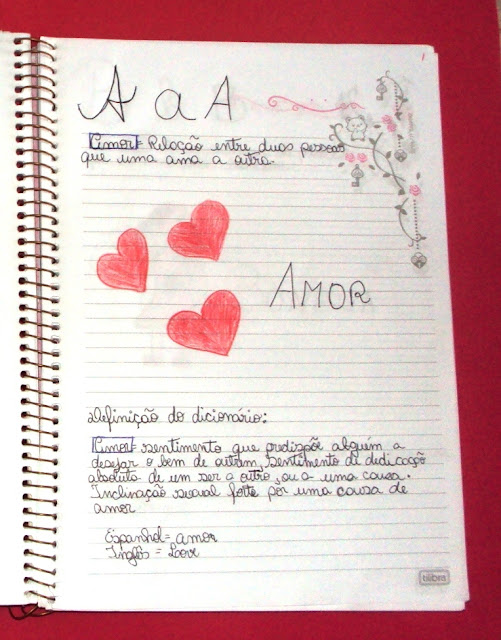 A a A
Amor = Relação entre duas pessoas
que uma ama a outra.
AMOR
Definição do dicionário:
Amor = sentimento que predispõe alguém a
desejar o bem de outrem, sentimento de dedicação
absoluta de um ser a outro, ou a uma causa.
Inclinação sexual forte por uma causa de
amor
Espanhol = amor
Inglês = Love
tilibra